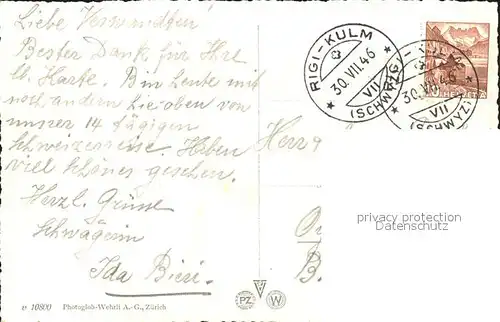 Liebe Verwandten
Bester Dank für Ihre
lb. Karte. Bin heute mit
noch andern hier oben von
unsrer 14 tägigen
Schweizerreise. Haben
viel schönes gesehen.
Herzl. Grüsse
Schwägerin
Ida Bieri.
Herrn
B.
RIGI-KULM
30.VII.46
VII
(SCHWYZ)
RIGI-KULM
30.VII.46
VII
(SCHWYZ)
HELVETIA
privacy protection
watermark
v 10800 Photoglob-Wehrli A.-G., Zürich
PZ W